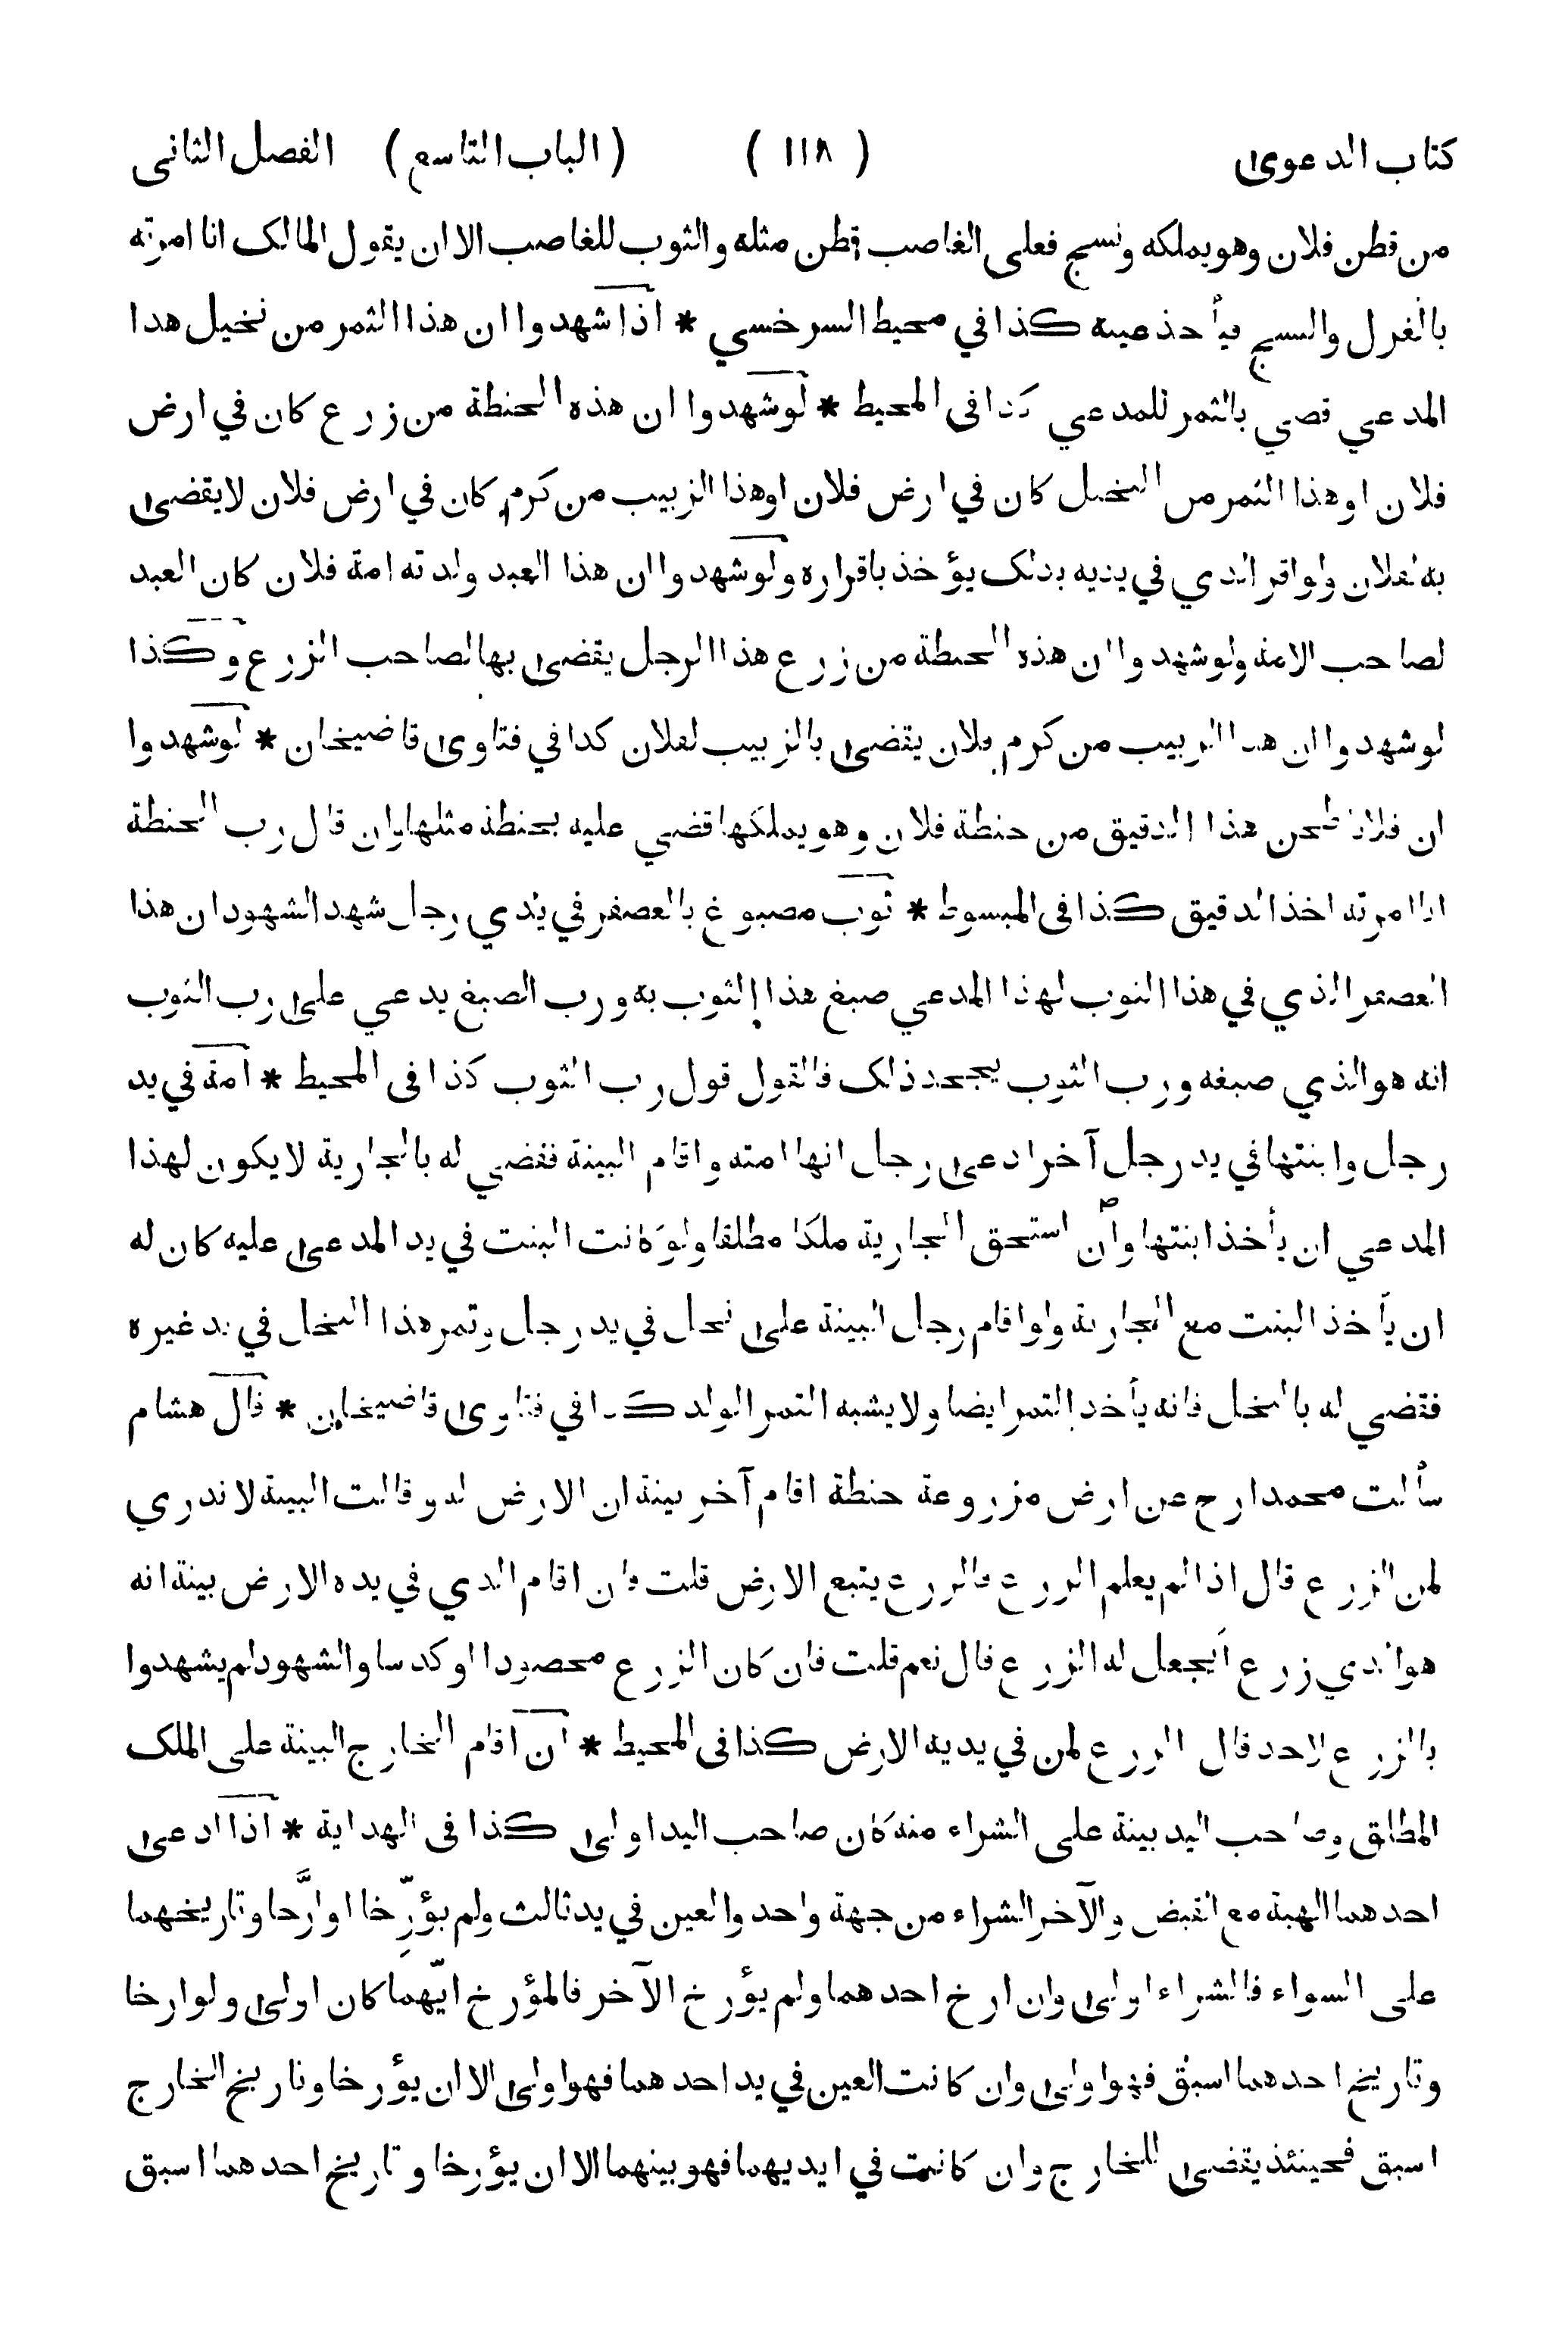 كتاب الدعوى ( ١١٨ ) ( الباب التاسع ) الفصل الثانى
من قطن فلان وهويملكه ونسج فعلى الغاصب قطن مثله والثوب للغاصب الا ان يقول المالك انا امرته
بالغزل والنسج فيأخذ عينه كذا في محيط السرخسي * اذا شهدوا ان هذا الثمر من نخيل هذا
المدعي قضي بالثمر للمدعي كذا فى المحيط * لو شهدوا ان هذه الحنطة من زرع كان في ارض
فلان او هذا الثمر من النخل كان في ارض فلان او هذا الزبيب من كرم كان في ارض فلان لا يقضى
به لفلان ولو اقر الذي في يديه بذلك يؤخذ باقراره ولو شهدوا ان هذا العبد ولدته امة فلان كان العبد
لصاحب الامة ولو شهدوا ان هذه الحنطة من زرع هذا الرجل يقضى بها لصاحب الزرع وكذا
لو شهدوا ان هذا الزبيب من كرم فلان يقضى بالزبيب لفلان كذا في فتاوى قاضيخان * لو شهدوا
ان فلانا طحن هذا الدقيق من حنطة فلان وهو يملكها قضي عليه بحنطة مثلها وان قال رب الحنطة
انا امرته اخذ الدقيق كذا فى المبسوط * ثوب مصبوغ بالعصفر في يدي رجل شهد الشهود ان هذا
العصفر الذي في هذا الثوب لهذا المدعي صبغ هذا الثوب به ورب الصبغ يدعي على رب الثوب
انه هو الذي صبغه ورب الثوب يجحد ذلك فالقول قول رب الثوب كذا فى المحيط * امة في يد
رجل وابنتها في يد رجل آخر ادعى رجل انها امته واقام البينة فقضي له بالجارية لا يكون لهذا
المدعي ان يأخذ ابنتها وان استحق الجارية ملكا مطلقا ولو كانت البنت في يد المدعى عليه كان له
ان يأخذ البنت مع الجارية ولو اقام رجل البينة على نخل في يد رجل وتمر هذا النخل في يد غيره
فقضي له بالنخل فانه يأخذ التمر ايضا ولا يشبه التمر الولد كذا في فتاوى قاضيخان * قال هشام
سألت محمدا رح عن ارض مزروعة حنطة اقام آخر بينة ان الارض له وقالت البينة لا ندري
لمن الزرع قال اذا لم يعلم الزرع فالزرع يتبع الارض قلت فان اقام الذي في يده الارض بينة انه
هو الذي زرع أيجعل له الزرع قال نعم قلت فان كان الزرع محصودا او كدسا والشهود لم يشهدوا
بالزرع لاحد قال الزرع لمن في يديه الارض كذا فى المحيط * ان اقام الخارج البينة على الملك
المطلق وصاحب اليد بينة على الشراء منه كان صاحب اليد اولى كذا فى الهداية * اذا ادعى
احدهما الهبة مع القبض والآخر الشراء من جهة واحد والعين في يد ثالث ولم يؤرّخا او ارّخا وتاريخهما
على السواء فالشراء اولى وان ارخ احدهما ولم يؤرخ الآخر فالمؤرخ ايّهما كان اولى ولو ارخا
وتاريخ احدهما اسبق فهو اولى وان كانت العين في يد احدهما فهو اولى الا ان يؤرخا وتاريخ الخارج
اسبق فحينئذ يقضى للخارج وان كانت في ايديهما فهو بينهما الا ان يؤرخا وتاريخ احدهما اسبق